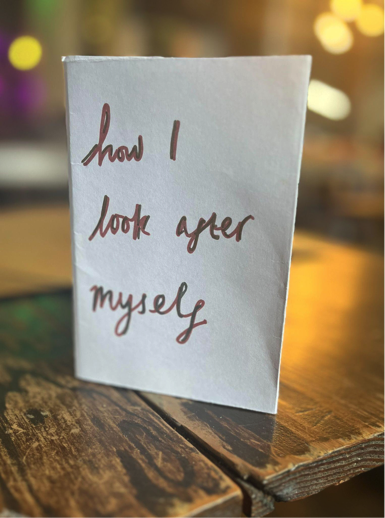 how I
look after
myself